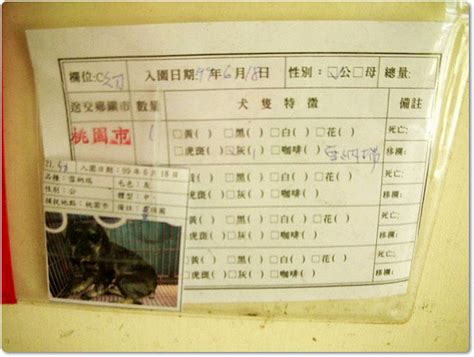 欄位:C 入園日期:99年6月18日 性別:☑公□母 總量:
送交鄉鎮市 數量 犬隻特徵 備註
桃園市 1 □黃( ) □黑( ) □白( ) □花( ) 死亡:
□虎斑( ) ☑灰( ) □咖啡( ) 雪納瑞 移欄:
□黃( ) □黑( ) □白( ) □花( ) 死亡:
□虎斑( ) □灰( ) □咖啡( ) 移欄:
□黃( ) □黑( ) □白( ) □花( ) 死亡:
□虎斑( ) □灰( ) □咖啡( ) 移欄:
□黃( ) □黑( ) □白( ) □花( ) 死亡:
□虎斑( ) □灰( ) □咖啡( ) 移欄:
入園日期:99年6月18日
品種:雪納瑞 毛色:灰
性別:公 體型:中
捕捉地點:桃園市 備註: